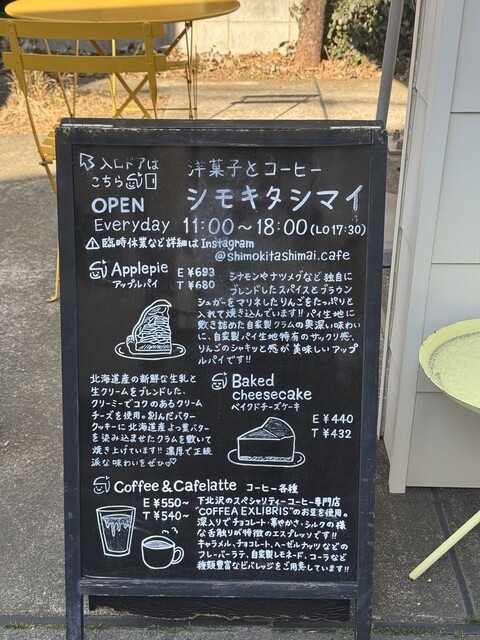 入口ドアは
こちら
洋菓子とコーヒー
シモキタシマイ
OPEN
Everyday 11:00～18:00(LO 17:30)
⚠臨時休業など詳細はInstagram
@shimokitashimai.cafe
Applepie
アップルパイ
E ¥693
T ¥680
シナモンやナツメグなど独自に
ブレンドしたスパイスとブラウン
シュガーをマリネしたりんごをたっぷりと
入れて焼き込んでいます!! パイ生地に
敷き詰めた自家製クラムの奥深い味わい
に、自家製パイ生地特有のザックリ感、
りんごのシャキッと感が美味しいアップ
ルパイです!!
Baked
cheesecake
ベイクドチーズケーキ
E ¥440
T ¥432
北海道産の新鮮な生乳と
生クリームをブレンドした、
クリーミーでコクのあるクリーム
チーズを使用。刻んだバター
クッキーに北海道産よつ葉バター
を染み込ませたクラムを敷いて
焼き上げています!! 濃厚で正統
派な味わいをぜひ♡
Coffee & Cafelatte コーヒー各種
E ¥550~
T ¥540~
下北沢のスペシャリティーコーヒー専門店
"COFFEA EXLIBRIS"のお豆を使用。
深入りでチョコレート・華やかさ・シルクの様
な舌触りが特徴のエスプレッソです!!
キャラメル、チョコレート、ヘーゼルナッツなどの
フレーバーラテ、自家製レモネード、コーラなど
種類豊富なビバレッジをご用意しています!!